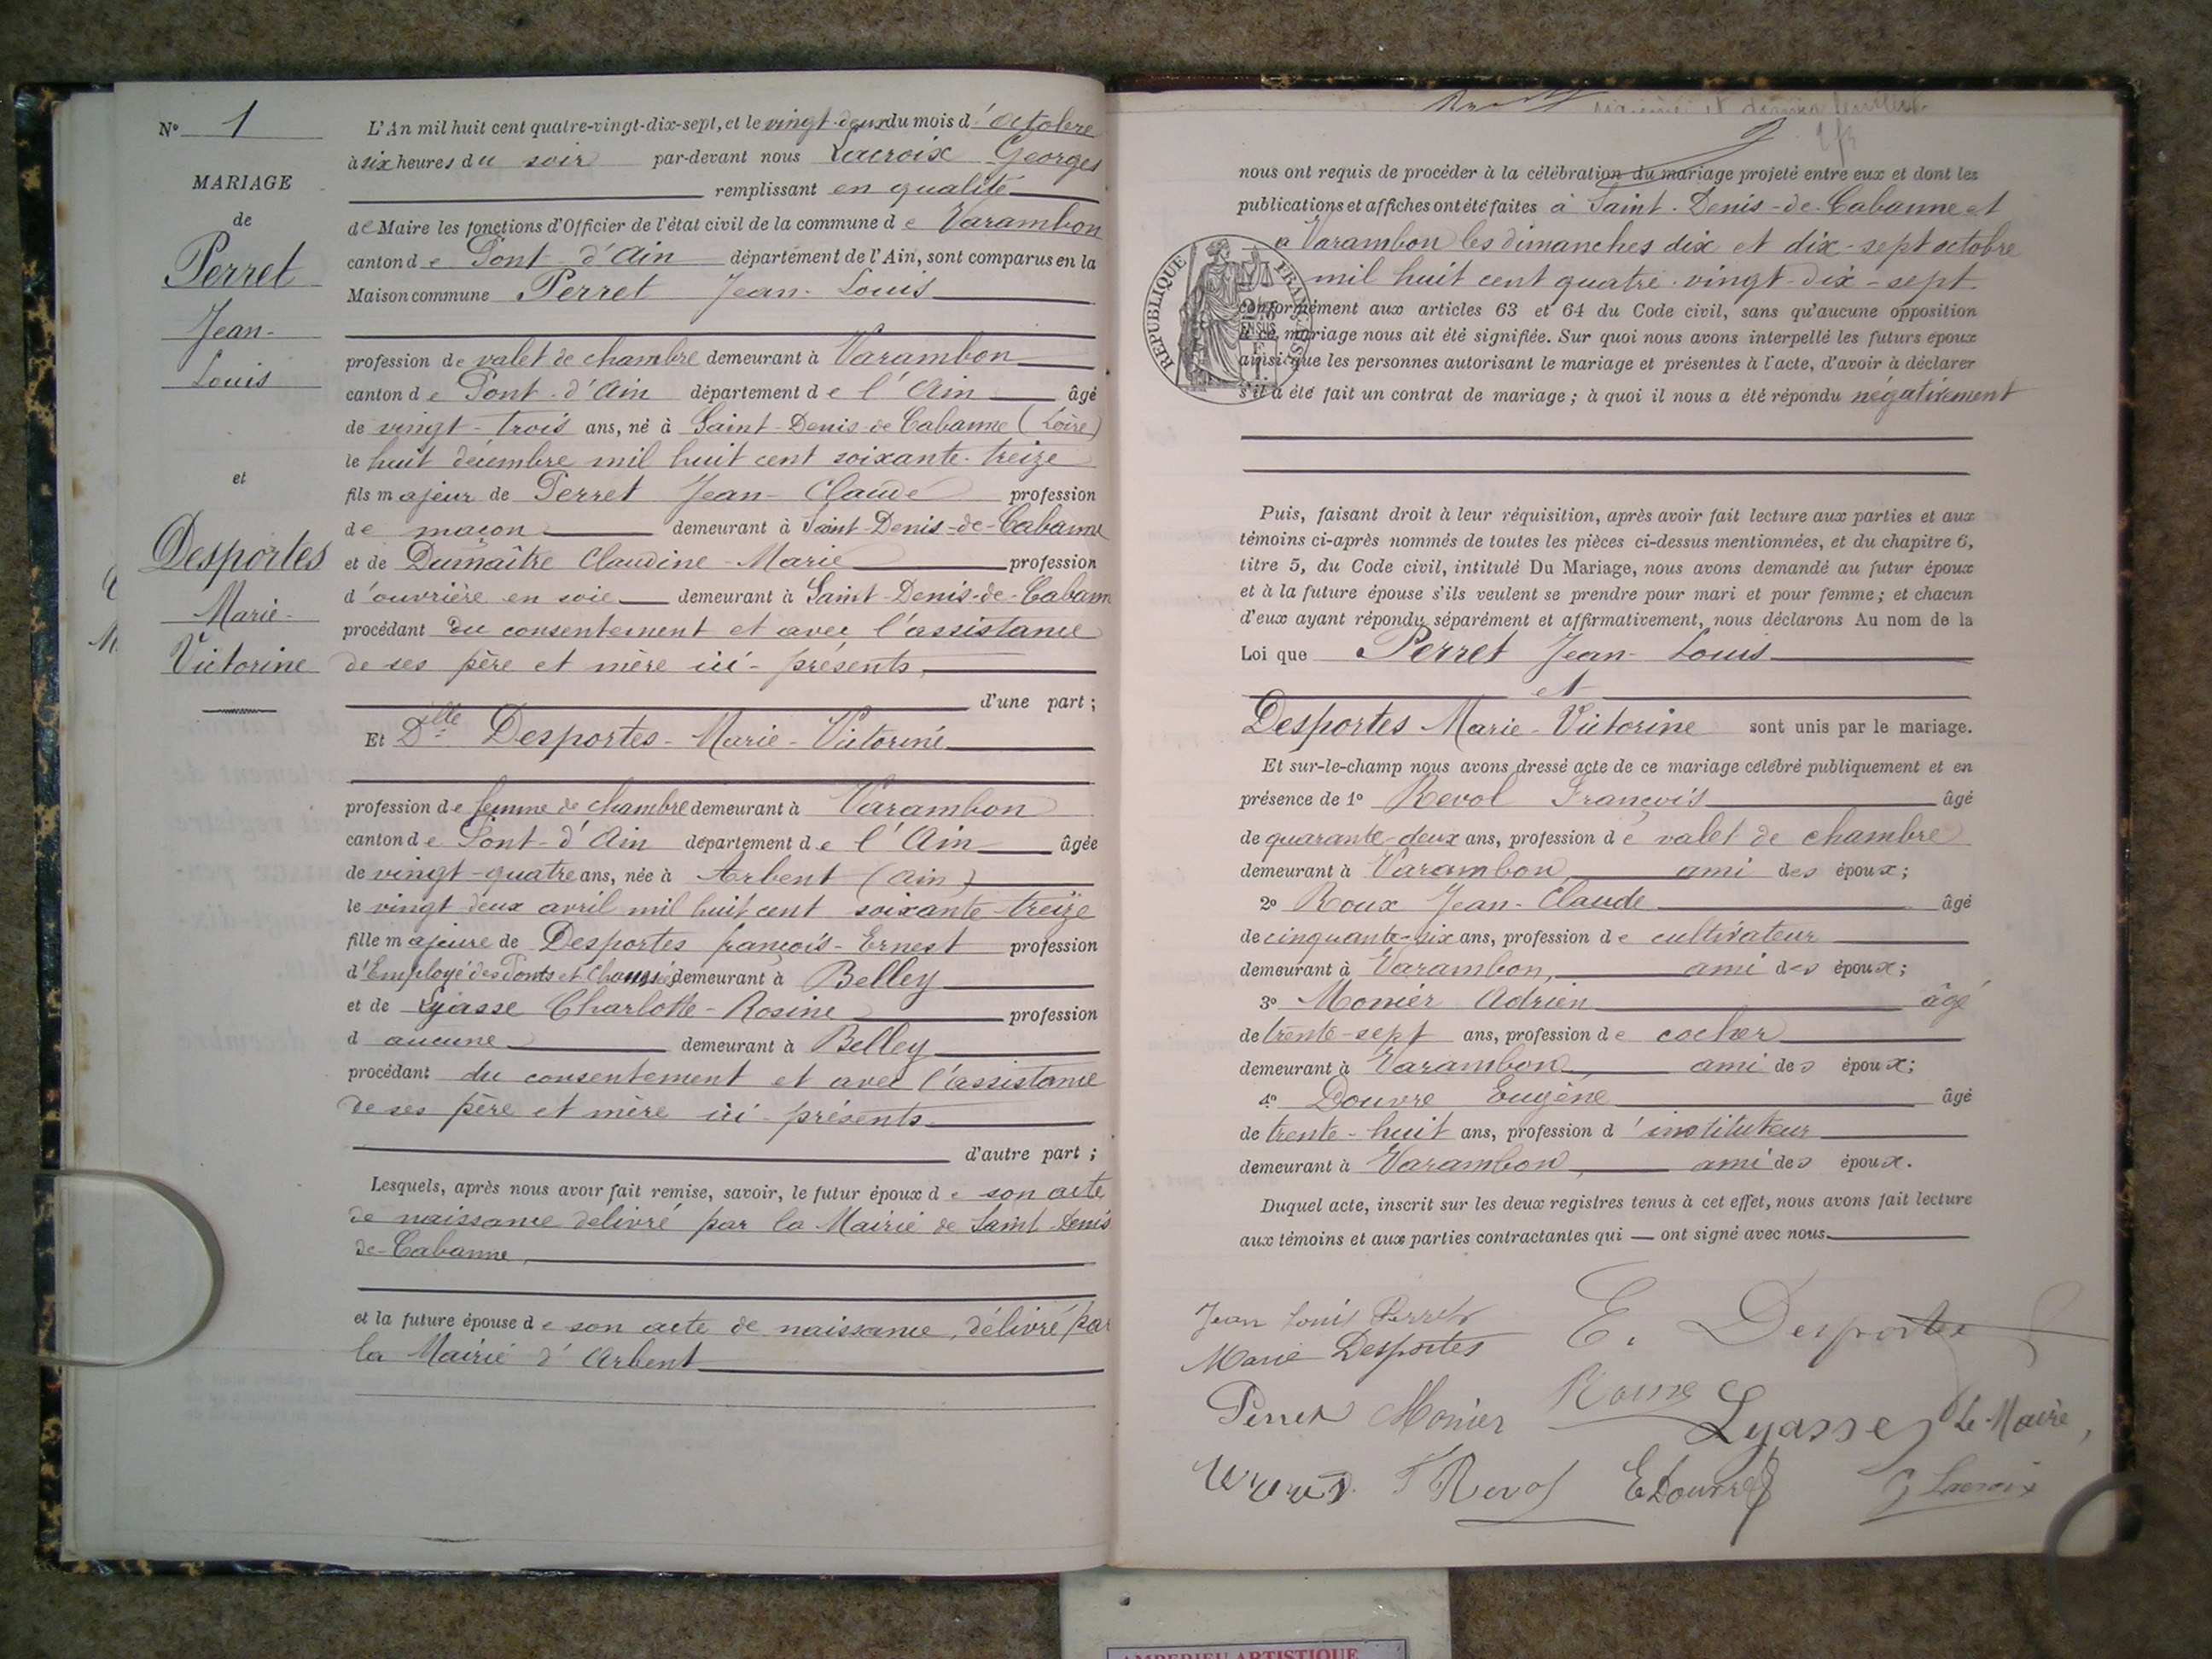 N° 1
MARIAGE
de
Perret
Jean-
Louis
et
Desportes
Marie-
Victorine
L'An mil huit cent quatre-vingt-dix-sept, et le vingt-deux du mois d'Octobre
à six heures du soir par-devant nous Lacroix Georges
remplissant en qualité
de Maire les fonctions d'Officier de l'état civil de la commune de Varambon
canton de Pont-d'Ain département de l'Ain, sont comparus en la
Maison commune Perret Jean-Louis
profession de valet de chambre demeurant à Varambon
canton de Pont-d'Ain département de l'Ain âgé
de vingt-trois ans, né à Saint-Denis-de-Cabanne (Loire)
le huit décembre mil huit cent soixante-treize
fils majeur de Perret Jean-Claude profession
de maçon demeurant à Saint-Denis-de-Cabanne
et de Dumaître Claudine-Marie profession
d'ouvrière en soie demeurant à Saint-Denis-de-Cabann
procédant du consentement et avec l'assistance
de ses père et mère ici-présents,
d'une part ;
Et Dlle Desportes-Marie-Victorine
profession de femme de chambre demeurant à Varambon
canton de Pont-d'Ain département de l'Ain âgée
de vingt-quatre ans, née à Arbent (Ain)
le vingt deux avril mil huit cent soixante-treize
fille majeure de Desportes françois-Ernest profession
d'Employé des Ponts et Chaussées demeurant à Belley
et de Lyasse Charlotte-Rosine profession
d aucune demeurant à Belley
procédant du consentement et avec l'assistance
de ses père et mère ici-présents
d'autre part ;
Lesquels, après nous avoir fait remise, savoir, le futur époux de son acte
de naissance delivré par la Mairie de Saint-Denis
de-Cabanne,
et la future épouse de son acte de naissance, délivré par
la Mairie d'Arbent
nous ont requis de procéder à la célébration du mariage projeté entre eux et dont les
publications et affiches ont été faites à Saint-Denis-de-Cabanne et
à Varambon les dimanches dix et dix-sept octobre
mil huit cent quatre-vingt-dix-sept
RÉPUBLIQUE FRANÇAISE
conformément aux articles 63 et 64 du Code civil, sans qu'aucune opposition
à ce mariage nous ait été signifiée. Sur quoi nous avons interpellé les futurs époux
ainsi que les personnes autorisant le mariage et présentes à l'acte, d'avoir à déclarer
s'il a été fait un contrat de mariage ; à quoi il nous a été répondu négativement
Puis, faisant droit à leur réquisition, après avoir fait lecture aux parties et aux
témoins ci-après nommés de toutes les pièces ci-dessus mentionnées, et du chapitre 6,
titre 5, du Code civil, intitulé Du Mariage, nous avons demandé au futur époux
et à la future épouse s'ils veulent se prendre pour mari et pour femme ; et chacun
d'eux ayant répondu séparément et affirmativement, nous déclarons Au nom de la
Loi que Perret Jean-Louis
et
Desportes Marie-Victorine sont unis par le mariage.
Et sur-le-champ nous avons dressé acte de ce mariage célébré publiquement et en
présence de 1° Revol François âgé
de quarante-deux ans, profession de valet de chambre
demeurant à Varambon ami des époux ;
2° Roux Jean-Claude âgé
de cinquante-six ans, profession de cultivateur
demeurant à Varambon, ami des époux ;
3° Monier Adrien âgé
de trente-sept ans, profession de cocher
demeurant à Varambon ami des époux ;
4° Douvre Eugène âgé
de trente-huit ans, profession d'instituteur
demeurant à Varambon, ami des époux.
Duquel acte, inscrit sur les deux registres tenus à cet effet, nous avons fait lecture
aux témoins et aux parties contractantes qui ont signé avec nous.
Jean Louis Perret E. Desportes
Marie Desportes
Perret Monier Lyasse Le Maire,
F Revol E Douvre G Lacroix
AMBERIEU ARTISTIQUE